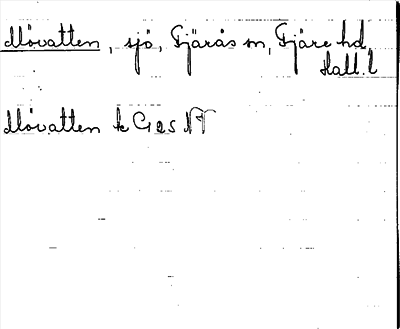 Mövatten, sjö, Fjärås sn, Fjäre hd,
Hall. l
Mövatten k G 25 NV